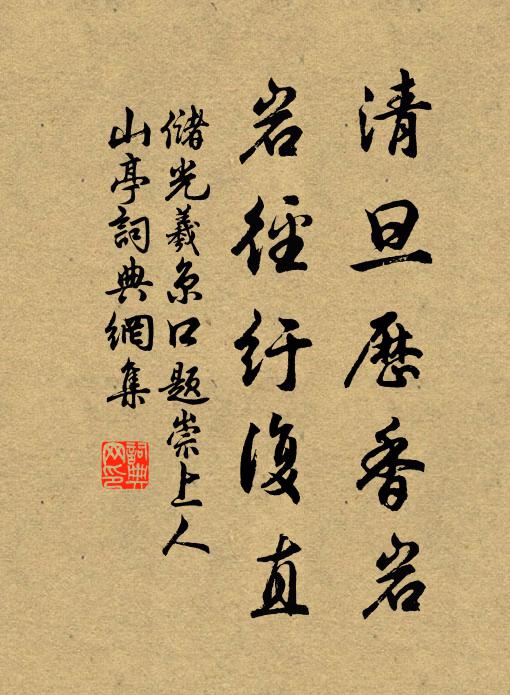 清旦歷香岩
岩徑纡復直
儲光羲京口題崇上人
山亭詞典網集
詞典网印